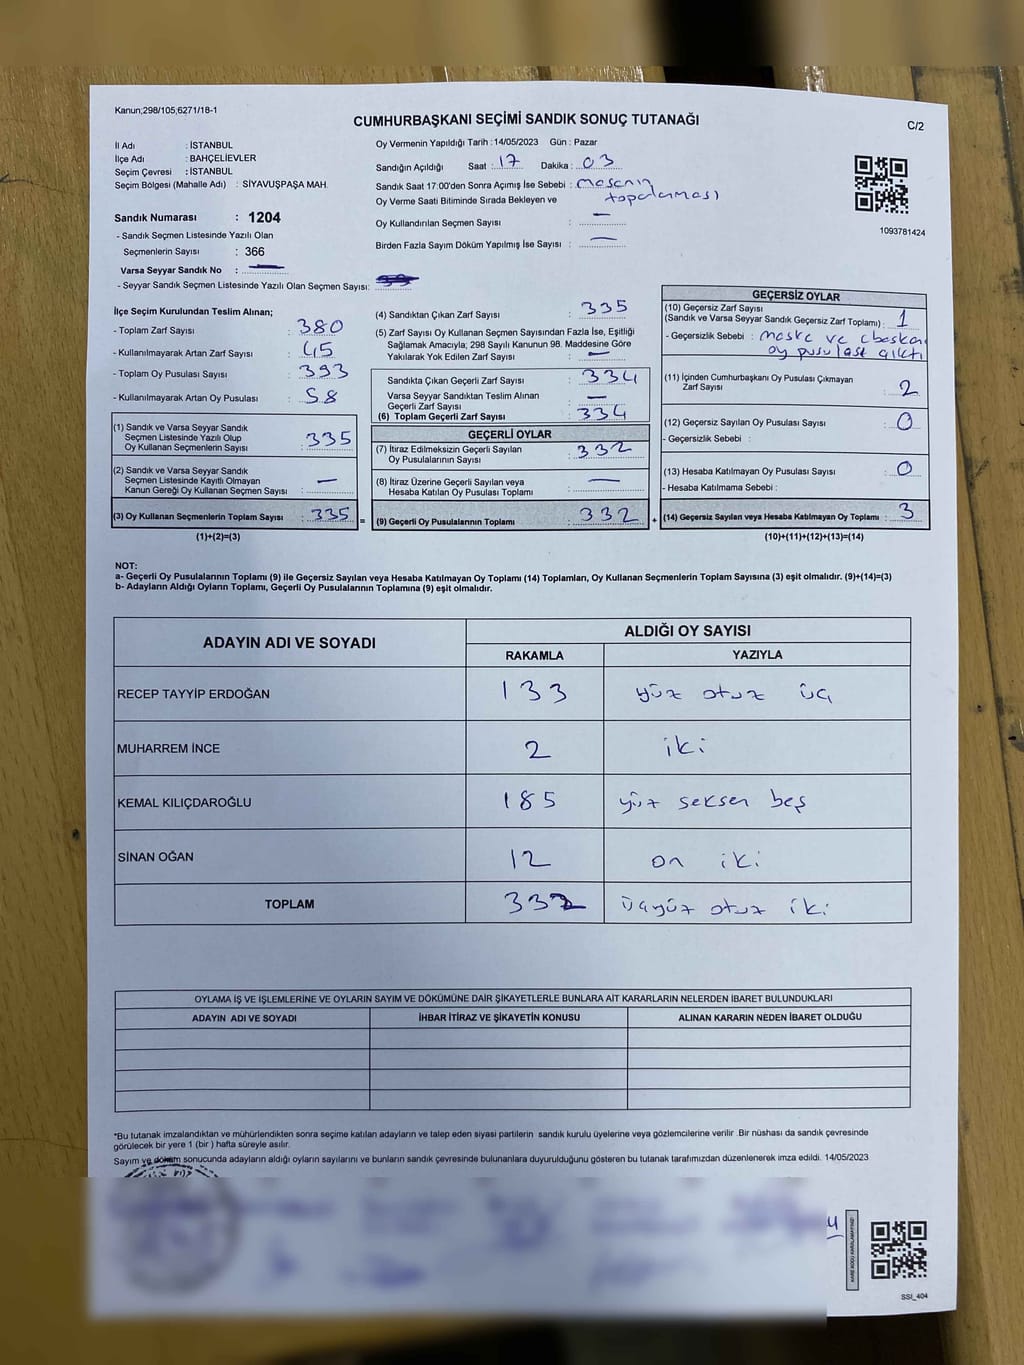 Kanun;298/105,6271/18-1
CUMHURBAŞKANI SEÇİMİ SANDIK SONUÇ TUTANAĞI
C/2
İl Adı : İSTANBUL
İlçe Adı : BAHÇELİEVLER
Seçim Çevresi : İSTANBUL
Seçim Bölgesi (Mahalle Adı) : SİYAVUŞPAŞA MAH.
Sandık Numarası : 1204
- Sandık Seçmen Listesinde Yazılı Olan
Seçmenlerin Sayısı : 366
Varsa Seyyar Sandık No :
- Seyyar Sandık Seçmen Listesinde Yazılı Olan Seçmen Sayısı:
Oy Vermenin Yapıldığı Tarih :14/05/2023 Gün : Pazar
Sandığın Açıldığı Saat : 17 Dakika : 03
Sandık Saat 17:00'den Sonra Açımış İse Sebebi : masanın
Oy Verme Saati Bitiminde Sırada Bekleyen ve toparlanması
Oy Kullandırılan Seçmen Sayısı : —
Birden Fazla Sayım Döküm Yapılmış İse Sayısı : —
1093781424
İlçe Seçim Kurulundan Teslim Alınan;
- Toplam Zarf Sayısı : 380
- Kullanılmayarak Artan Zarf Sayısı : 45
- Toplam Oy Pusulası Sayısı : 393
- Kullanılmayarak Artan Oy Pusulası : 58
(1) Sandık ve Varsa Seyyar Sandık
Seçmen Listesinde Yazılı Olup
Oy Kullanan Seçmenlerin Sayısı : 335
(2) Sandık ve Varsa Seyyar Sandık
Seçmen Listesinde Kayıtlı Olmayan
Kanun Gereği Oy Kullanan Seçmen Sayısı : —
(3) Oy Kullanan Seçmenlerin Toplam Sayısı : 335
(1)+(2)=(3)
(4) Sandıktan Çıkan Zarf Sayısı : 335
(5) Zarf Sayısı Oy Kullanan Seçmen Sayısından Fazla İse, Eşitliği
Sağlamak Amacıyla; 298 Sayılı Kanunun 98. Maddesine Göre
Yakılarak Yok Edilen Zarf Sayısı : —
Sandıkta Çıkan Geçerli Zarf Sayısı : 334
Varsa Seyyar Sandıktan Teslim Alınan
Geçerli Zarf Sayısı : —
(6) Toplam Geçerli Zarf Sayısı : 334
GEÇERLİ OYLAR
(7) İtiraz Edilmeksizin Geçerli Sayılan
Oy Pusulalarının Sayısı : 332
(8) İtiraz Üzerine Geçerli Sayılan veya
Hesaba Katılan Oy Pusulası Toplamı : —
= (9) Geçerli Oy Pusulalarının Toplamı : 332
GEÇERSİZ OYLAR
(10) Geçersiz Zarf Sayısı
(Sandık ve Varsa Seyyar Sandık Geçersiz Zarf Toplamı) : 1
- Geçersizlik Sebebi : maske ve
oy pusulası çıktı
(11) İçinden Cumhurbaşkanı Oy Pusulası Çıkmayan
Zarf Sayısı : 2
(12) Geçersiz Sayılan Oy Pusulası Sayısı : 0
- Geçersizlik Sebebi :
(13) Hesaba Katılmayan Oy Pusulası Sayısı : 0
- Hesaba Katılmama Sebebi :
+ (14) Geçersiz Sayılan veya Hesaba Katılmayan Oy Toplamı : 3
(10)+(11)+(12)+(13)=(14)
NOT:
a- Geçerli Oy Pusulalarının Toplamı (9) ile Geçersiz Sayılan veya Hesaba Katılmayan Oy Toplamı (14) Toplamları, Oy Kullanan Seçmenlerin Toplam Sayısına (3) eşit olmalıdır. (9)+(14)=(3)
b- Adayların Aldığı Oyların Toplamı, Geçerli Oy Pusulalarının Toplamına (9) eşit olmalıdır.
ADAYIN ADI VE SOYADI
ALDIĞI OY SAYISI
RAKAMLA YAZIYLA
RECEP TAYYİP ERDOĞAN 133 yüz otuz üç
MUHARREM İNCE 2 iki
KEMAL KILIÇDAROĞLU 185 yüz seksen beş
SİNAN OĞAN 12 on iki
TOPLAM 332 üçyüz otuz iki
OYLAMA İŞ VE İŞLEMLERİNE VE OYLARIN SAYIM VE DÖKÜMÜNE DAİR ŞİKAYETLERLE BUNLARA AİT KARARLARIN NELERDEN İBARET BULUNDUKLARI
ADAYIN ADI VE SOYADI İHBAR İTİRAZ VE ŞİKAYETİN KONUSU ALINAN KARARIN NEDEN İBARET OLDUĞU
*Bu tutanak imzalandıktan ve mühürlendikten sonra seçime katılan adayların ve talep eden siyasi partilerin sandık kurulu üyelerine veya gözlemcilerine verilir .Bir nüshası da sandık çevresinde
görülecek bir yere 1 (bir ) hafta süreyle asılır.
Sayım ve döküm sonucunda adayların aldığı oyların sayılarını ve bunların sandık çevresinde bulunanlara duyurulduğunu gösteren bu tutanak tarafımızdan düzenlenerek imza edildi. 14/05/2023
SSI_404